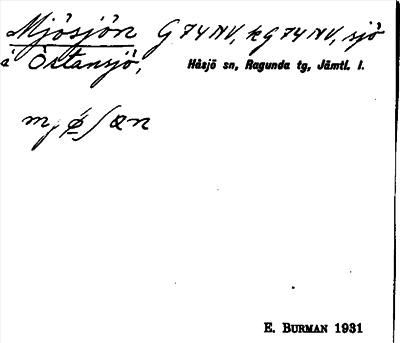 Mjösjön G 74 NV, kG 74 NV, sjö
i Östansjö, Håsjö sn, Ragunda tg, Jämtl. l.
E. BURMAN 1931